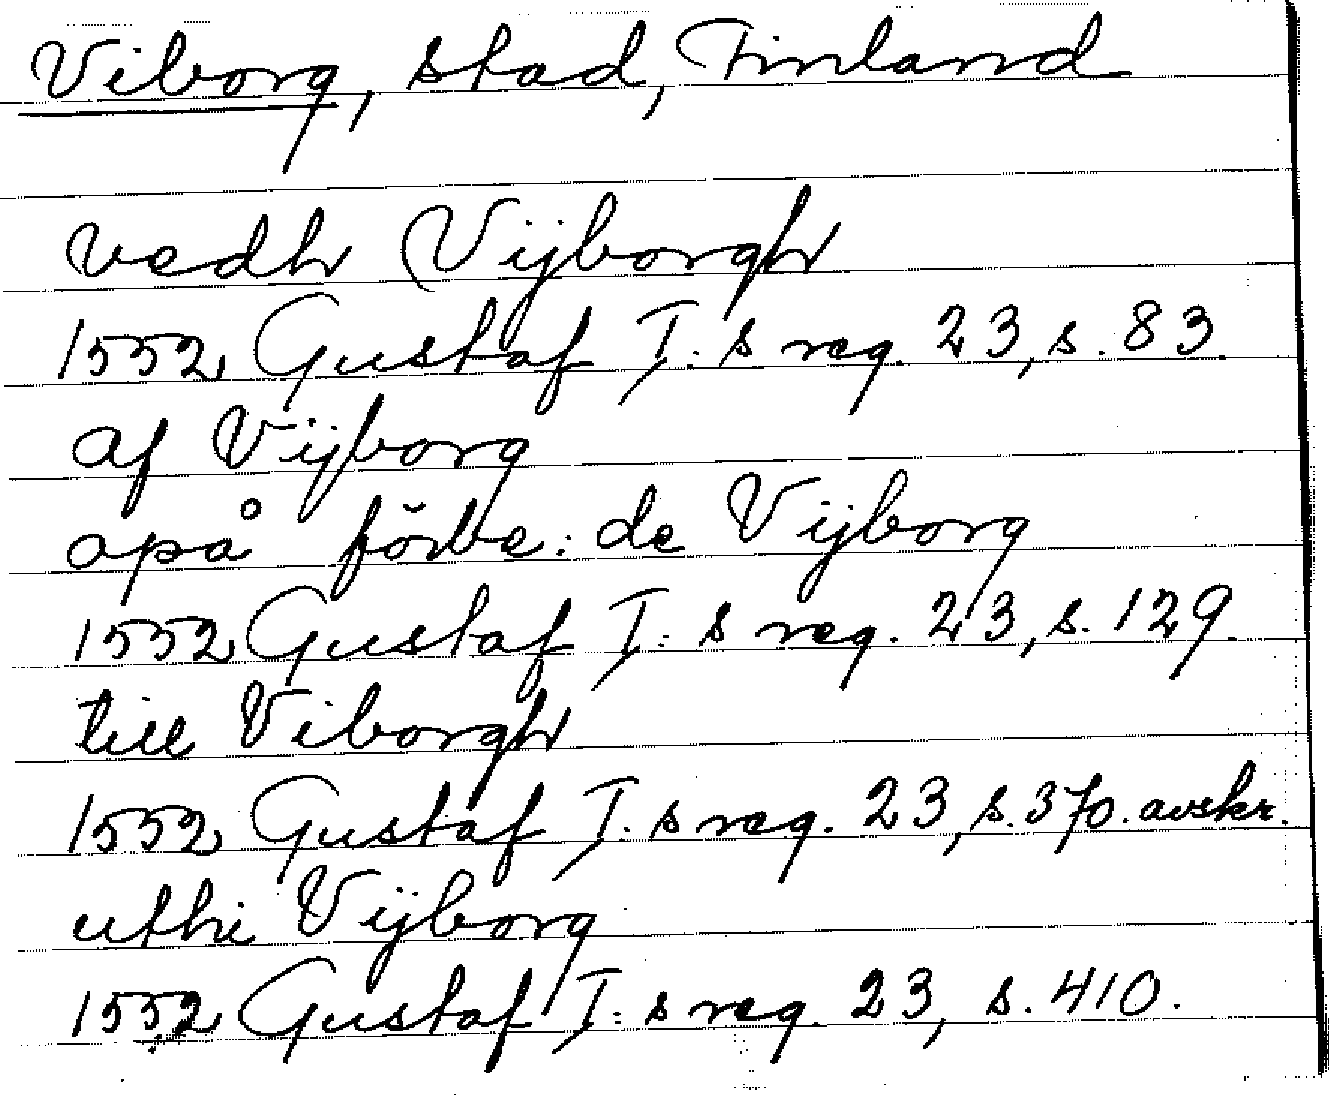 Viborg, stad, Finland
vedh Vijborgh
1552 Gustaf I. s reg. 23, s. 83.
af Vijborg
opå förbe: de Vijborg
1552 Gustaf I: s reg. 23, s. 129.
till Viborgh
1552 Gustaf I. s reg. 23, s. 370. avskr.
uthi Vijborg
1552 Gustaf I: s reg. 23, s. 410.